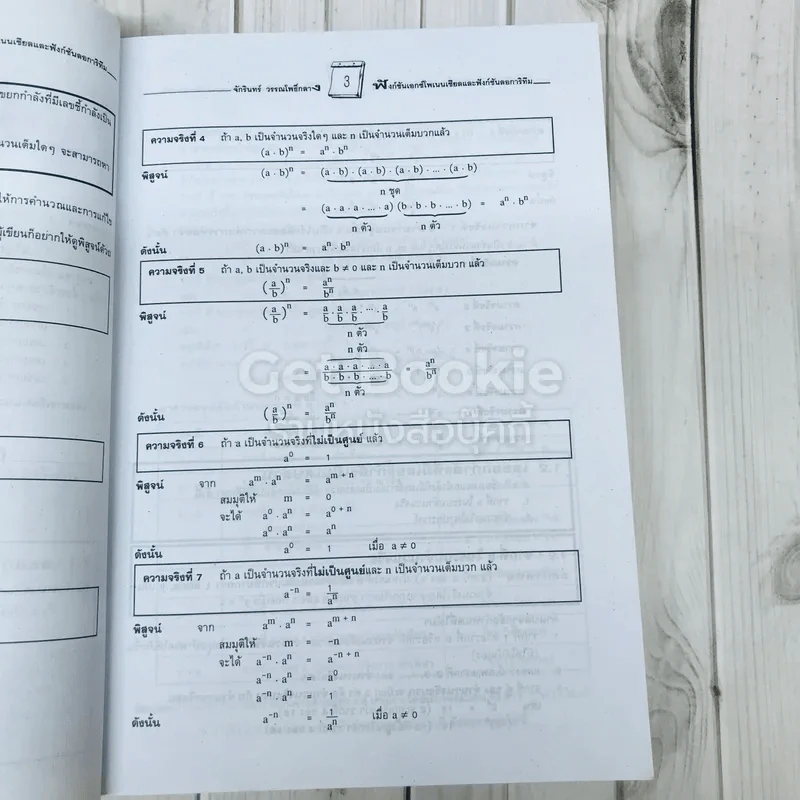 นเซียลและฟังก์ชันลอการิทึม
ขยกกำลังที่มีเลขชี้กำลังเป็น
นวนเต็มใดๆ จะสามารถหา
ให้การคำนวณและการแก้ไข
ผู้เขียนก็อยากให้ดูพิสูจน์ด้วย
จักรินทร์ วรรณโพธิ์กลาง 3 ฟังก์ชันเอกซ์โพเนนเชียลและฟังก์ชันลอการิทึม
ความจริงที่ 4 ถ้า a, b เป็นจำนวนจริงใดๆ และ n เป็นจำนวนเต็มบวกแล้ว
(a · b)ⁿ = aⁿ · bⁿ
พิสูจน์ (a · b)ⁿ = (a · b) · (a · b) · (a · b) · ... · (a · b)
n ชุด
= (a · a · a · ... · a) (b · b · b · ... · b) = aⁿ · bⁿ
n ตัว n ตัว
ดังนั้น (a · b)ⁿ = aⁿ · bⁿ
ความจริงที่ 5 ถ้า a, b เป็นจำนวนจริงและ b ≠ 0 และ n เป็นจำนวนเต็มบวก แล้ว
(a/b)ⁿ = aⁿ/bⁿ
พิสูจน์ (a/b)ⁿ = a/b · a/b · a/b · ... · a/b
n ตัว
n ตัว
= a · a · a · ... · a / b · b · b · ... · b = aⁿ/bⁿ
n ตัว
ดังนั้น (a/b)ⁿ = aⁿ/bⁿ
Get Bookie
ร้านหนังสือบุ๊คกี้
ความจริงที่ 6 ถ้า a เป็นจำนวนจริงที่ไม่เป็นศูนย์ แล้ว
a⁰ = 1
พิสูจน์ จาก aᵐ · aⁿ = aᵐ ⁺ ⁿ
สมมุติให้ m = 0
จะได้ a⁰ · aⁿ = a⁰ ⁺ ⁿ
a⁰ · aⁿ = aⁿ
ดังนั้น a⁰ = 1 เมื่อ a ≠ 0
ความจริงที่ 7 ถ้า a เป็นจำนวนจริงที่ไม่เป็นศูนย์และ n เป็นจำนวนเต็มบวก แล้ว
a⁻ⁿ = 1/aⁿ
พิสูจน์ จาก aᵐ · aⁿ = aᵐ ⁺ ⁿ
สมมุติให้ m = -n
จะได้ a⁻ⁿ · aⁿ = a⁻ⁿ ⁺ ⁿ
a⁻ⁿ · aⁿ = a⁰
a⁻ⁿ · aⁿ = 1
ดังนั้น a⁻ⁿ = 1/aⁿ เมื่อ a ≠ 0